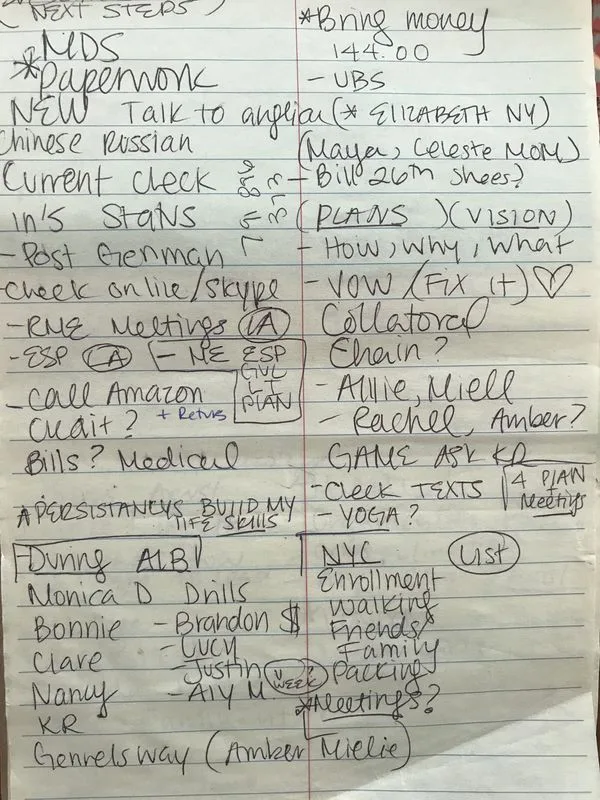 (NEXT STEPS)
MDS
*Paperwork
NEW Talk to anglia
Chinese Russian
Current check
in's Stans
- Post German
-check online/skype
- RNE Meetings LA
- ESP LA - NE ESP
GVL
LT
PLAN
- Call Amazon
Cudit? + Returs
Bills? Medical
*PERSISTANCYS BUILD MY
LIFE SKILLS
During ALB
Monica D Drills
Bonnie - Brandon $
Clare - Lucy
- Justin WEEK?
Nancy - Aly M
KR
Genrels way (Amber Mielie)
*Bring money
144.00
- UBS
(* ELIZABETH NY)
(Maya, Celeste MOM)
- Bill 26th Shees?
(PLANS) (VISION)
- How, Why, What
- VOW (Fix it) ♡
Collatoral
Chain?
- Allie, Miell
- Rachel, Amber?
GAME ASK KR
- Check TEXTS 4 PLAN
Meetings
- YOGA?
NYC List
Enrollment
Walking
Friends/
Family
Packing
*Meetings?